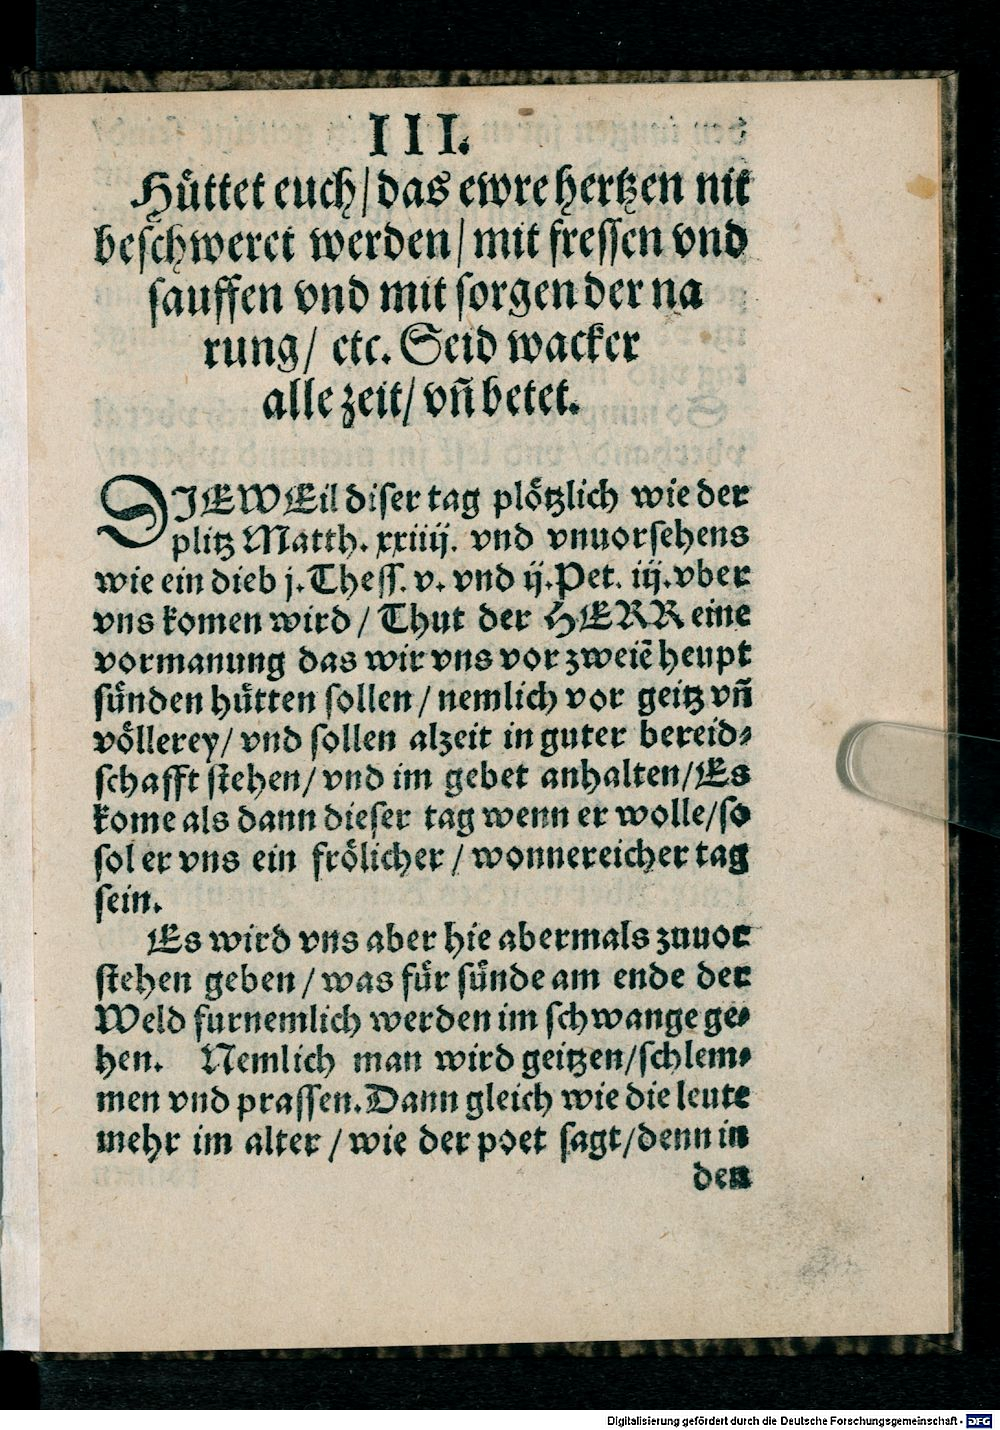 III.
Hüttet euch/ das ewre hertzen nit
beschweret werden/ mit fressen vnd
sauffen vnd mit sorgen der na
rung/ etc. Seid wacker
alle zeit/ vñ betet.
DIEWEil diser tag plötzlich wie der
plitz Matth. xxiiij. vnd vnuorsehens
wie ein dieb j. Thess. v. vnd ij. Pet. iij. vber
vns komen wird/ Thut der HERR eine
vormanung das wir vns vor zweiẽ heupt
sünden hütten sollen/ nemlich vor geitz vñ
völlerey/ vnd sollen alzeit in guter bereid⸗
schafft stehen/ vnd im gebet anhalten/ Es
kome als dann dieser tag wenn er wolle/ so
sol er vns ein frölicher/ wonnereicher tag
sein.
Es wird vns aber hie abermals zuuor
stehen geben/ was für sünde am ende der
Weld furnemlich werden im schwange ge⸗
hen. Nemlich man wird geitzen/ schlem⸗
men vnd prassen. Dann gleich wie die leute
mehr im alter/ wie der poet sagt/ denn in
den
Digitalisierung gefördert durch die Deutsche Forschungsgemeinschaft - DFG